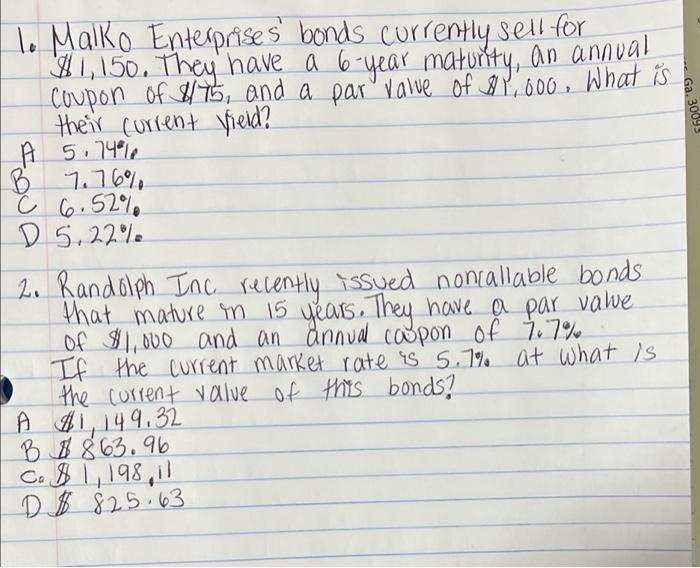 1. Malko Enterprises' bonds currently sell for
$1,150. They have a 6-year maturity, an annual
coupon of $75, and a par value of $1,000. What is
their current yield?
A 5.74%
B 7.76%
C 6.52%
D 5.22%
2. Randolph Inc recently issued noncallable bonds
that mature in 15 years. They have a par value
of $1,000 and an annual coupon of 7.7%
If the current market rate is 5.7% at what is
the current value of this bonds?
A $1,149.32
B $863.96
C. $1,198,11
D $ 825.63
Ga. 30093